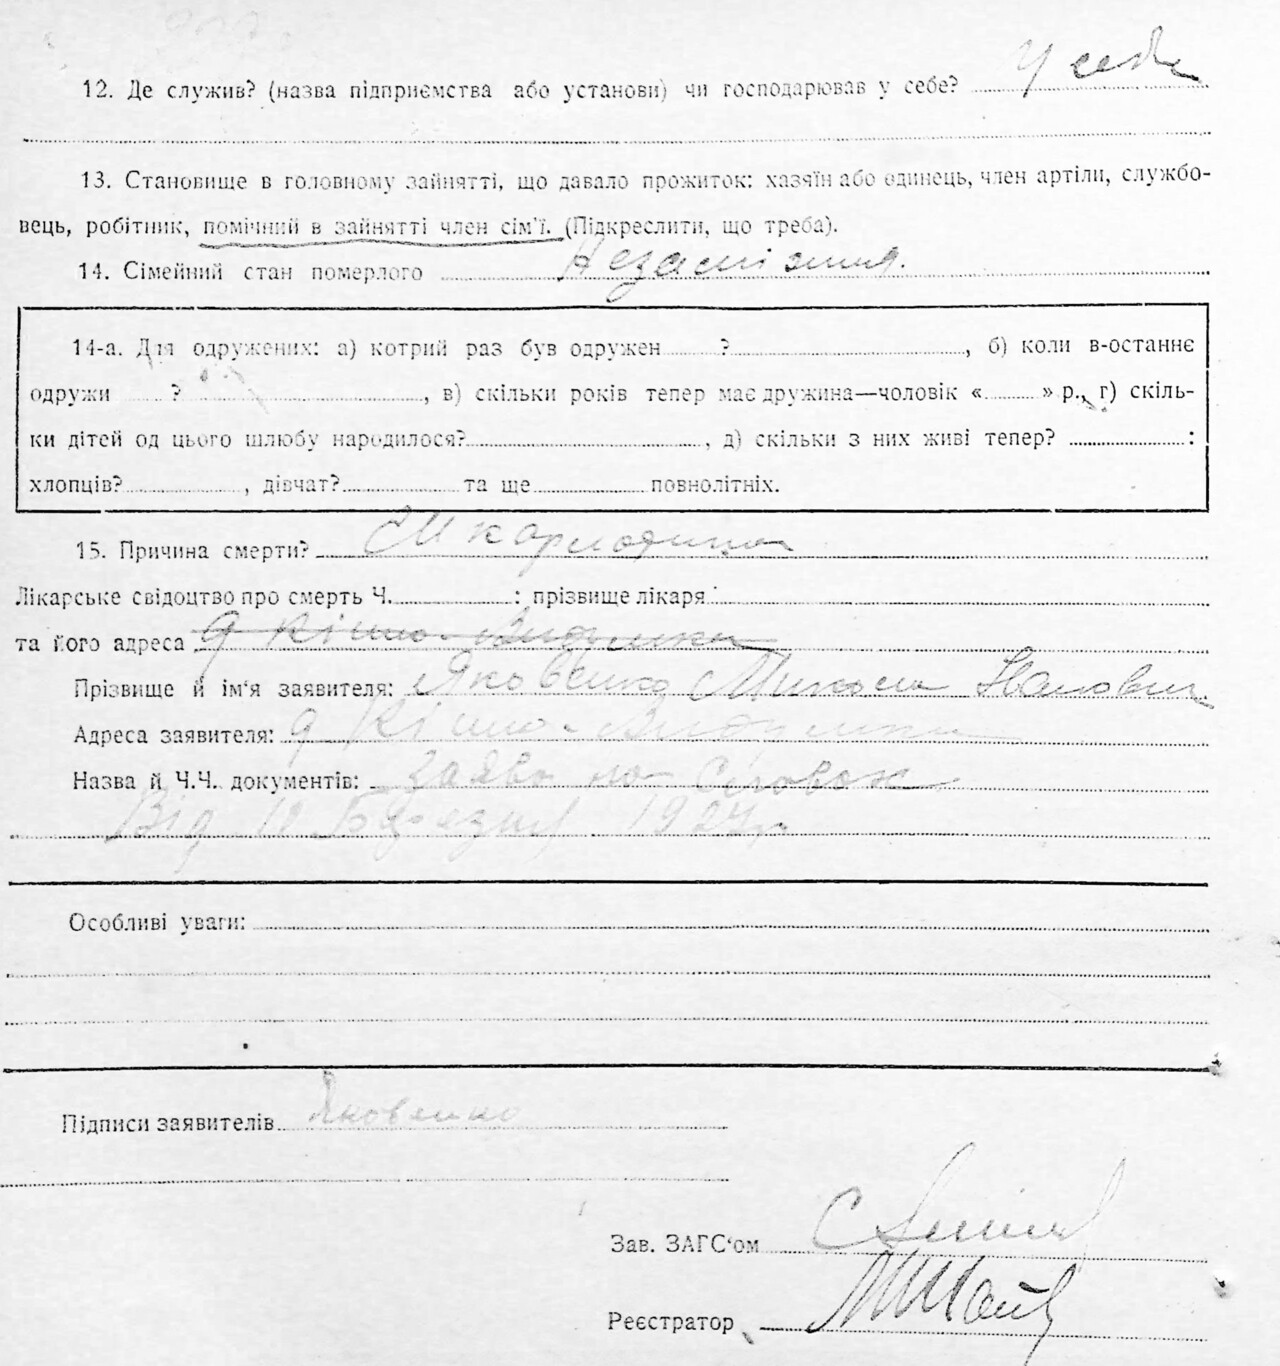 12. Де служив? (назва підприємства або установи) чи господарював у себе? У себе
13. Становище в головному зайнятті, що давало прожиток: хазяїн або одинець, член артіли, службо-
вець, робітник, помічний в зайнятті член сім'ї. (Підкреслити, що треба).
14. Сімейний стан померлого
14-а. Для одружених: а) котрий раз був одружен ?, б) коли в-останнє
одружи ?, в) скільки років тепер має дружина—чоловік « » р., г) скіль-
ки дітей од цього шлюбу народилося?, д) скільки з них живі тепер? :
хлопців?, дівчат? та ще повнолітніх.
15. Причина смерти? Шкарлятина
Лікарське свідоцтво про смерть Ч. : прізвище лікаря
та його адреса
Прізвище й ім'я заявителя: Яковенко Микола Іванович
Адреса заявителя:
Назва й Ч.Ч. документів: заява
Від Березня 1927р
Особливі уваги:
Підписи заявителів Яковенко
Зав. ЗАГС'ом
Реєстратор